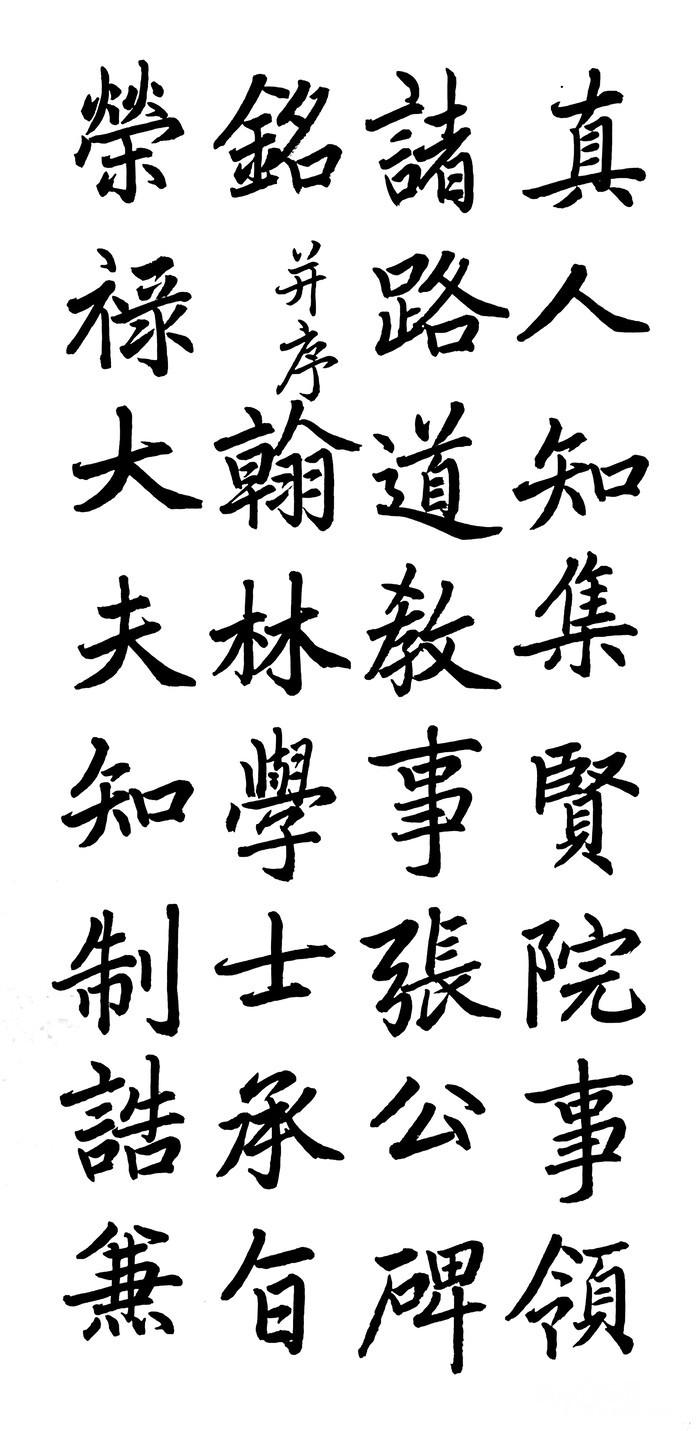 真人知集賢院事領
諸路道教事張公碑
銘并序翰林學士承旨
榮禄大夫知制誥兼